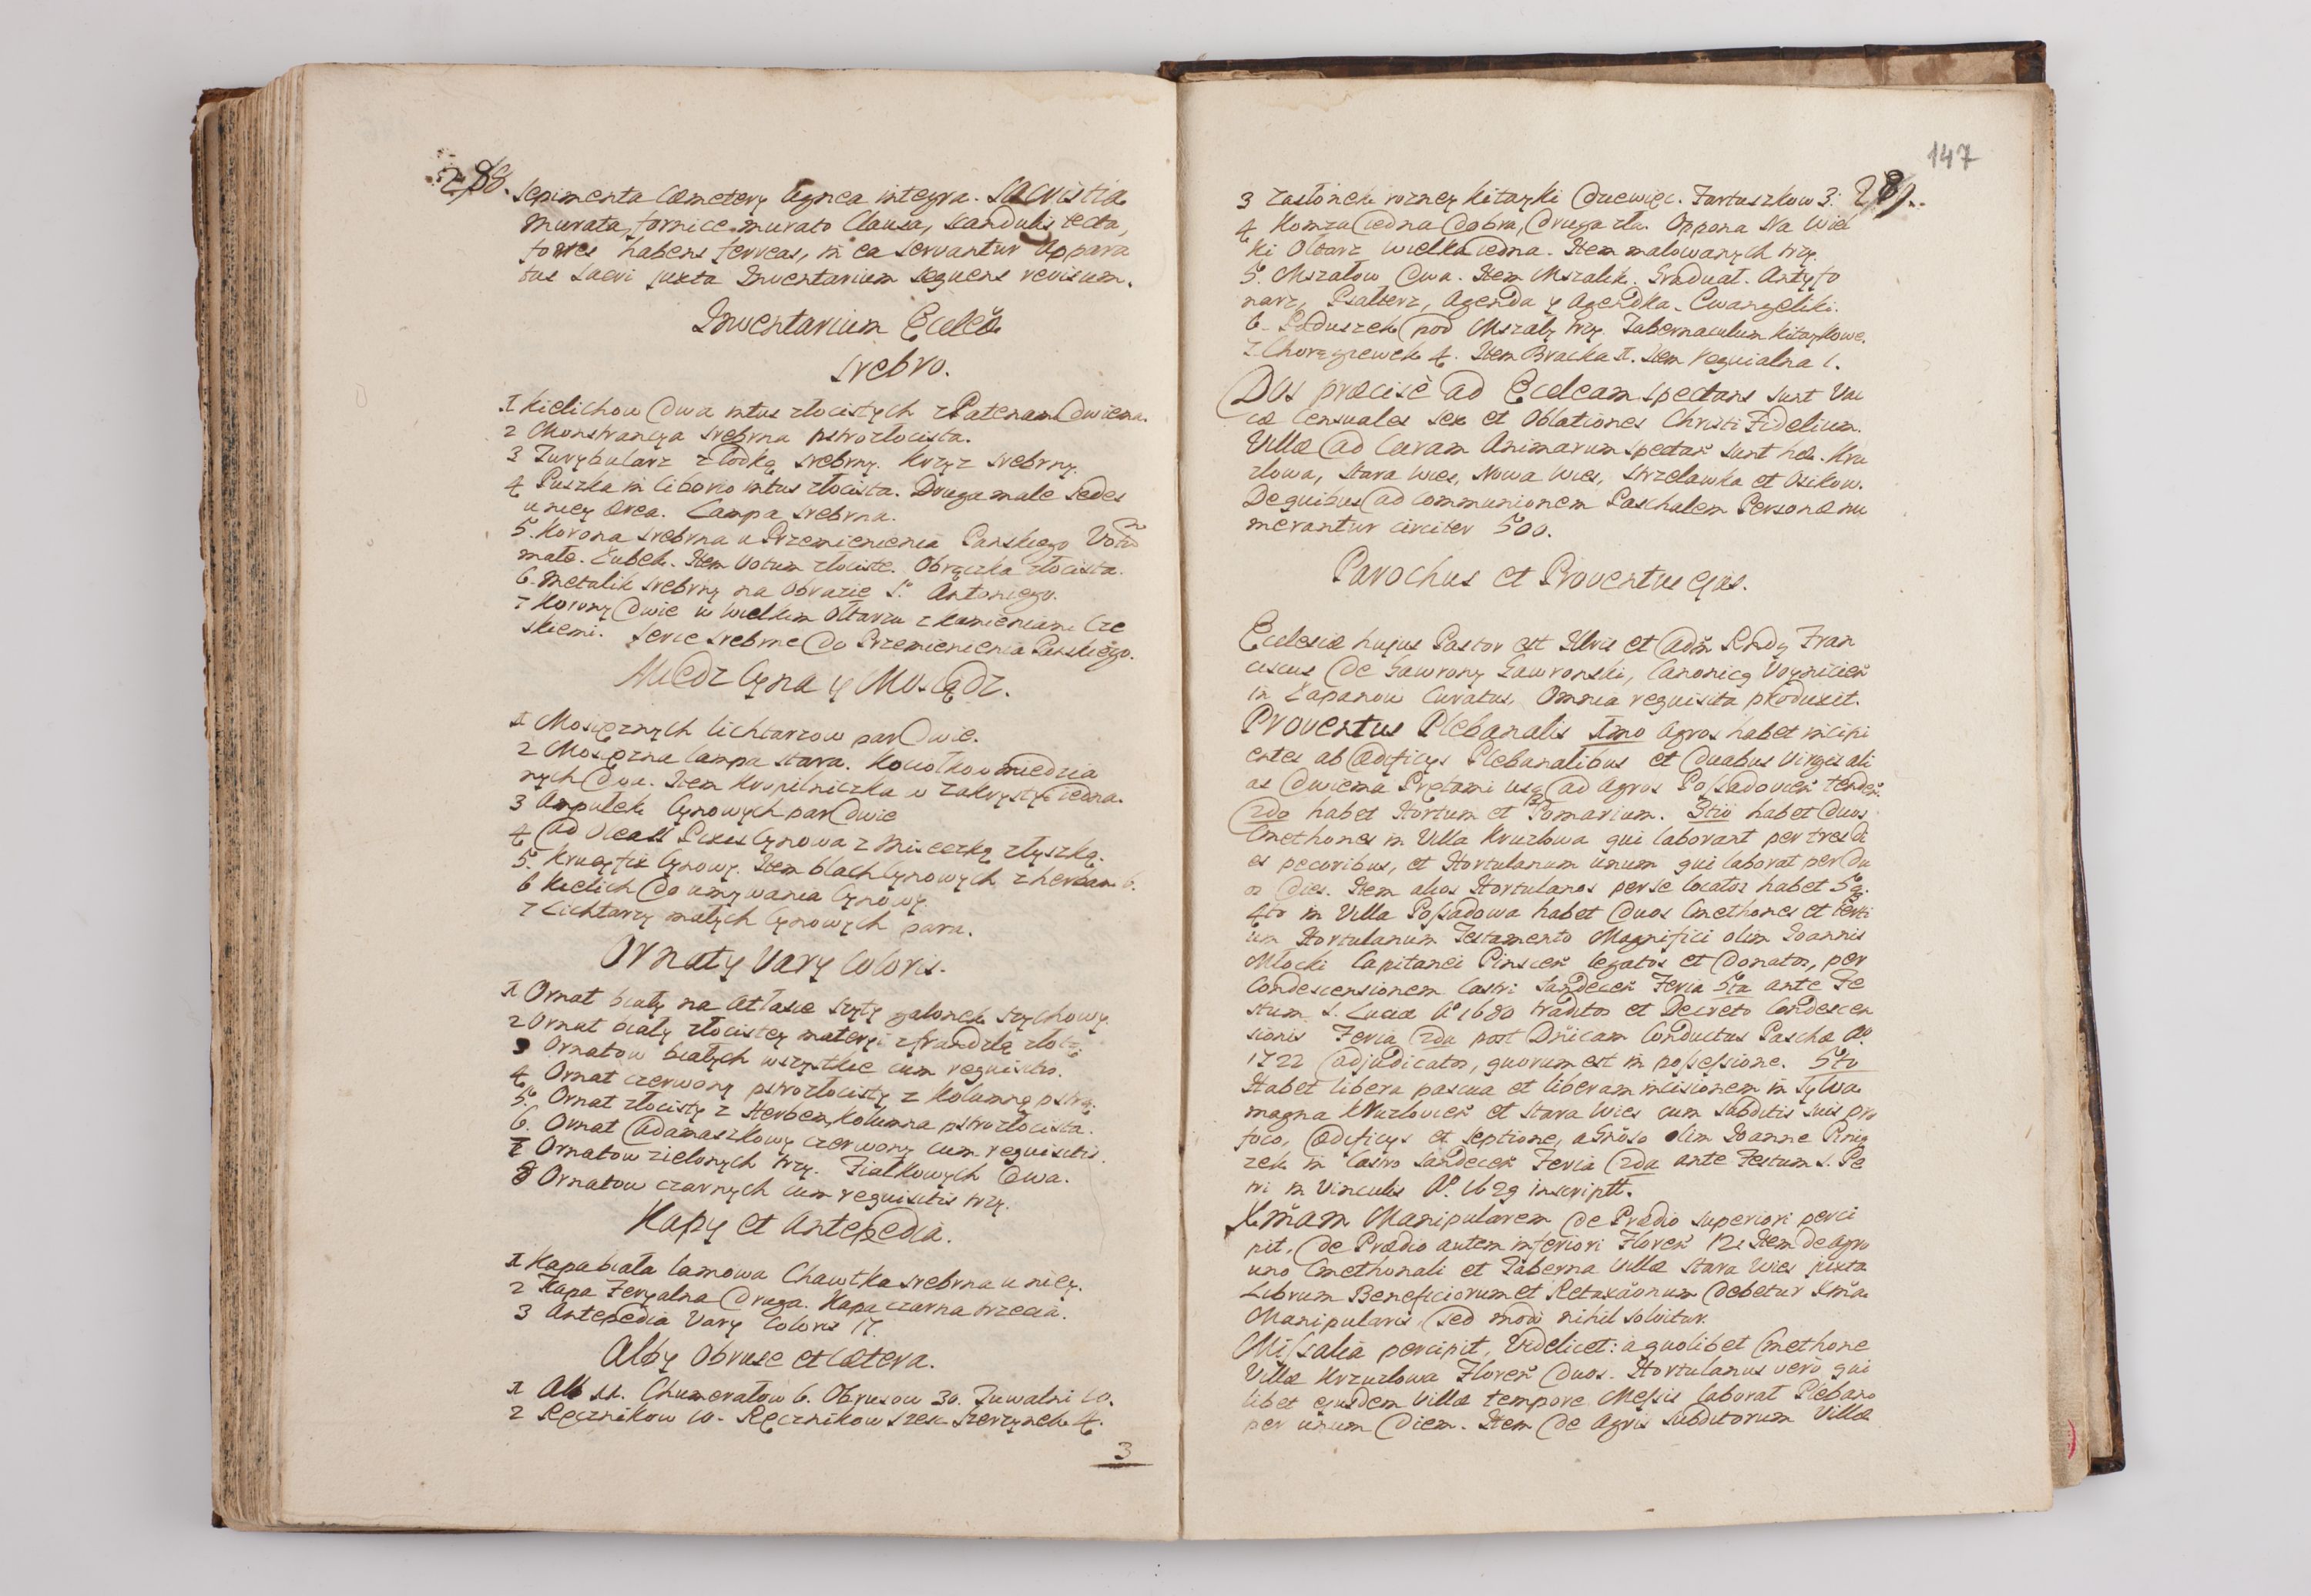 288.
Sepimenta Cæmeterij lignea integra. Sacristia
murata, fornice murato Clausa, Scandulis tecta,
fores habens ferreas, in ea servantur Appara
tus Sacri juxta Inventarium sequens revisum.
Inventarium Eccleæ
Srebro.
1 Kielichow dwa intus złocistych z Patenami dwiema.
2 Monstrancya srebrna pstrozłocista.
3 Turybularz z łodką srebrny. Krzyz srebrny.
4 Puszka in Ciborio intus złocista. Druga male sedes
u niey ærea. Lampa srebrna.
5. Korona srebrna u Przemienienia Panskiego Votum
małe. Kubek. Item Votum złociste. Obrączka złocista.
6. Metalik srebrny na Obrazie S. Antoniego.
7 Korony dwie w wielkim Ołtarzu z kamieniami Cze
skiemi. Serce srebrne do Przemienienia Panskiego.
Miedz Cyna y Mosiądz.
1 Mosięznych lichtarzow par dwie.
2 Mosięzna lampa stara. Kociołkow miedzia
nych dwa. Item Kropielniczka w zakrystyi iedna.
3 Ampułek Cynowych par dwie
4 ad Olea Pixis Cynowa z Miseczką złyszką.
5. Krucyfix Cynowy. Item blach Cynowych z herbami 6.
6 Kielich do umywania Cynowy.
7 Lichtarzy małych Cynowych para.
Ornaty Varij Coloris.
1 Ornat biały na Atłasie szyty galonek szychowy.
2 Ornat biały złocistey materyi z frandzlą złotą.
3 Ornatow białych wszystkie cum requisitis.
4 Ornat czerwony pstrozłocisty z Kolumną pstrą.
5. Ornat złocisty z Herbem, Kolumna pstrozłocista.
6. Ornat adamaszkowy czerwony cum requisitis.
7 Ornatow zielonych trzy. Fiałkowych dwa.
8 Ornatow czarnych cum requisitis trzy.
Kapy et Antepedia.
1 Kapa biała lamowa Chawtka srebrna u niey.
2 Kapa Feryalna druga. Kapa czarna trzecia.
3 Antepedia Varij Coloris 17.
Alby Obruse et Cætera.
1 Alb 11. Chumerałow 6. Obrusow 30. Tuwalni 10.
2 Ręcznikow 10. Ręcznikow szesc Szerzynek 4.
3
147
289.
3 zasłonek rozney kitayki dziewięc. Fartuszkow 3.
4 Komza iedna dobra, druga zła. Oppona Na Wiel
ki Ołtarz wielka iedna. Item malowanych trzy.
5. Mszałow dwa. Item Mszalik. Graduał. Antyfo
narz, Psałterz, Agenda y Agendka. Ewangeliki.
6. Poduszek pod Mszały trzy. Tabernaculum kitaykowe.
7. Chorągiewek 4. Item Bracka 1. Item requialna 1.
Dos præcisè ad Eccleam spectans sunt Vac
cæ Censuales sex et Oblationes Christi Fidelium.
Villæ ad Curam Animarum spectan̄ sunt hæ. Kru
zlowa, Stara Wies, Nowa Wies, Strzelawka et Osikow.
De quibus ad Communionem Paschalem Personæ nu
merantur circiter 500.
Parochus et Proventus ejus.
Ecclesiæ hujus Pastor est Illris et Adm̄ Rndq Fran
ciscus de Gawrony Gawronski, Canonicq Voynicien̄
in Łapanow Curatus, Omnia requisita produxit.
Proventus Plebanalis 1mo Agros habet incipi
entes ab ædificijs Plebanalibus et duabus Virgis ali
as dwiema Prętami usq ad Agros Possadovien̄ tenden̄.
2do habet Hortum et Pomarium. 3tiò habet duos
Cmethones in Villa Kruzlowa qui laborant per tres di
es pecoribus, et Hortulanum unum qui laborat per du
os dies. Item alios Hortulanos per se locatos habet 5q.
4to in Villa Possadowa habet duos Cmethones et terti
um Hortulanum Testamento Magnifici olim Joannis
Młocki Capitanei Pinscen̄ legatos et donatos, per
Condescensionem Castri Sandecen̄ Feria 5ta ante Fe
stum S. Luciæ A° 1680 traditos et Decreto Condescen
sionis Feria 2da post Dnicam Conductus Paschæ A°
1722 adjudicatos, quorum est in possessione. 5to
Habet libera pascua et liberam incisionem in Sylva
magna Kruzlovien̄ et Stara Wies cum subditis suis pro
foco, ædificijs et septione, a Gnoso olim Joanne Pienią
zek in Castro Sandecen̄ Feria 2da ante Festum S. Pe
tri in Vinculis A°. 1629 inscriptt.
Xmam Manipularem de Prædio superiori perci
pit, de Prædio autem inferiori Floren̄ 12. Item de Agro
uno Cmethonali et Taberna Villæ Stara Wies juxta
Librum Beneficiorum et Retaxaonum debetur Xma
Manipularis, sed modò nihil solvitur.
Missalia percipit, Videlicet: a quolibet Cmethone
Villæ Krzuzlowa Floren̄ duos. Hortulanus verò qui
libet ejusdem Villæ tempore Messis laborat Plebano
per unum diem. Item de Agris Subditorum Villæ